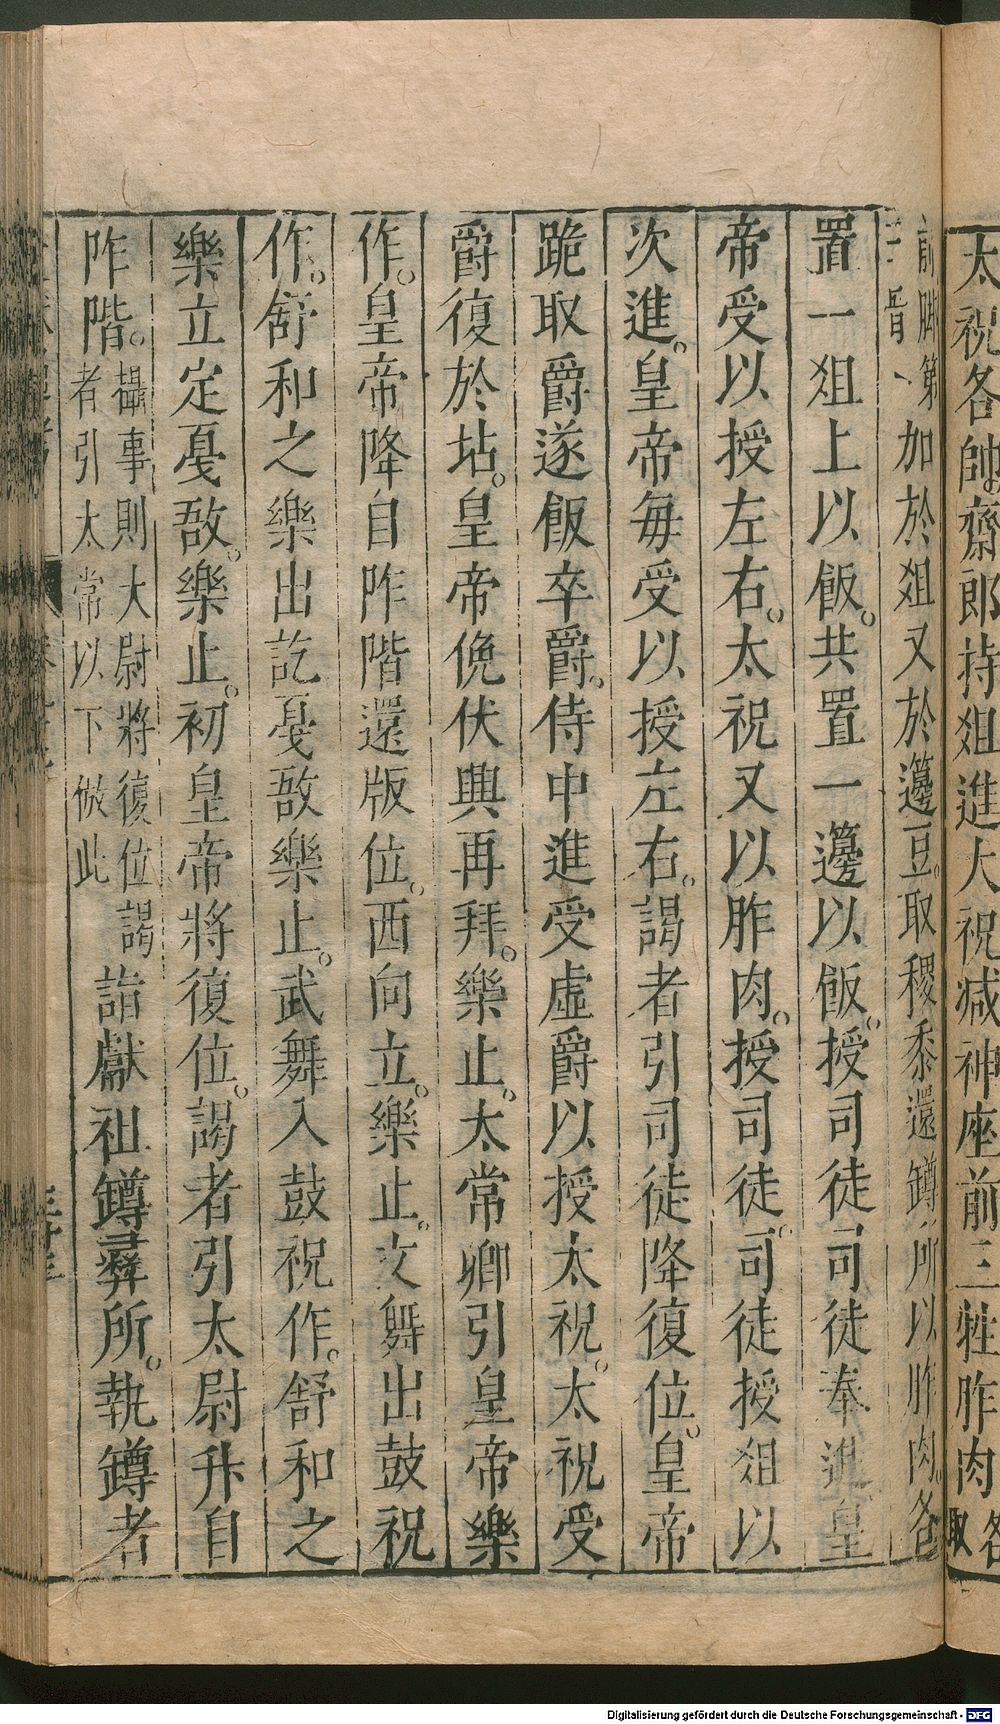 太祝各帥齋郎持爼進大祝减神座前三牲胙肉各取
前脚第二骨加於爼又於籩豆取稷黍還罇所以胙肉各
置一爼上以飯共置一籩以飯授司徒司徒奉進皇
帝受以授左右太祝又以胙肉授司徒司徒授爼以
次進皇帝每受以授左右謁者引司徒降復位皇帝
跪取爵遂飯卒爵侍中進受虛爵以授太祝太祝受
爵復於坫皇帝俛伏興再拜樂止太常卿引皇帝樂
作皇帝降自阼階還版位西向立樂止文舞出鼓祝
作舒和之樂出訖戞敔樂止武舞入鼓祝作舒和之
樂立定戞敔樂止初皇帝將復位謁者引太尉升自
阼階攝事則大尉將復位謁者引太常以下倣此詣獻祖罇彞所執罇者
Digitalisierung gefördert durch die Deutsche Forschungsgemeinschaft - DFG